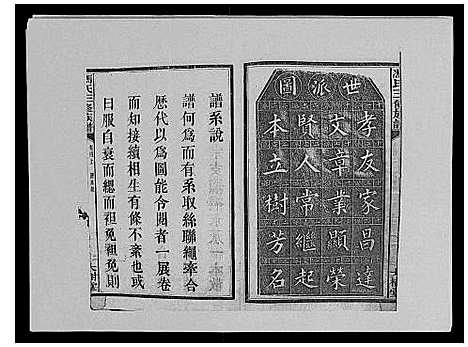 馮氏三修族譜
世派圖
孝友家昌達
文章業顯榮
賢人常繼起
本立樹芳名
譜系說
譜何為而有系取絲聯繩牽合
歷代以為圖能令閱者一展卷
而知接續相生有條不紊也或
曰服自衰而緦而袒免袒免則
馮氏三修族譜